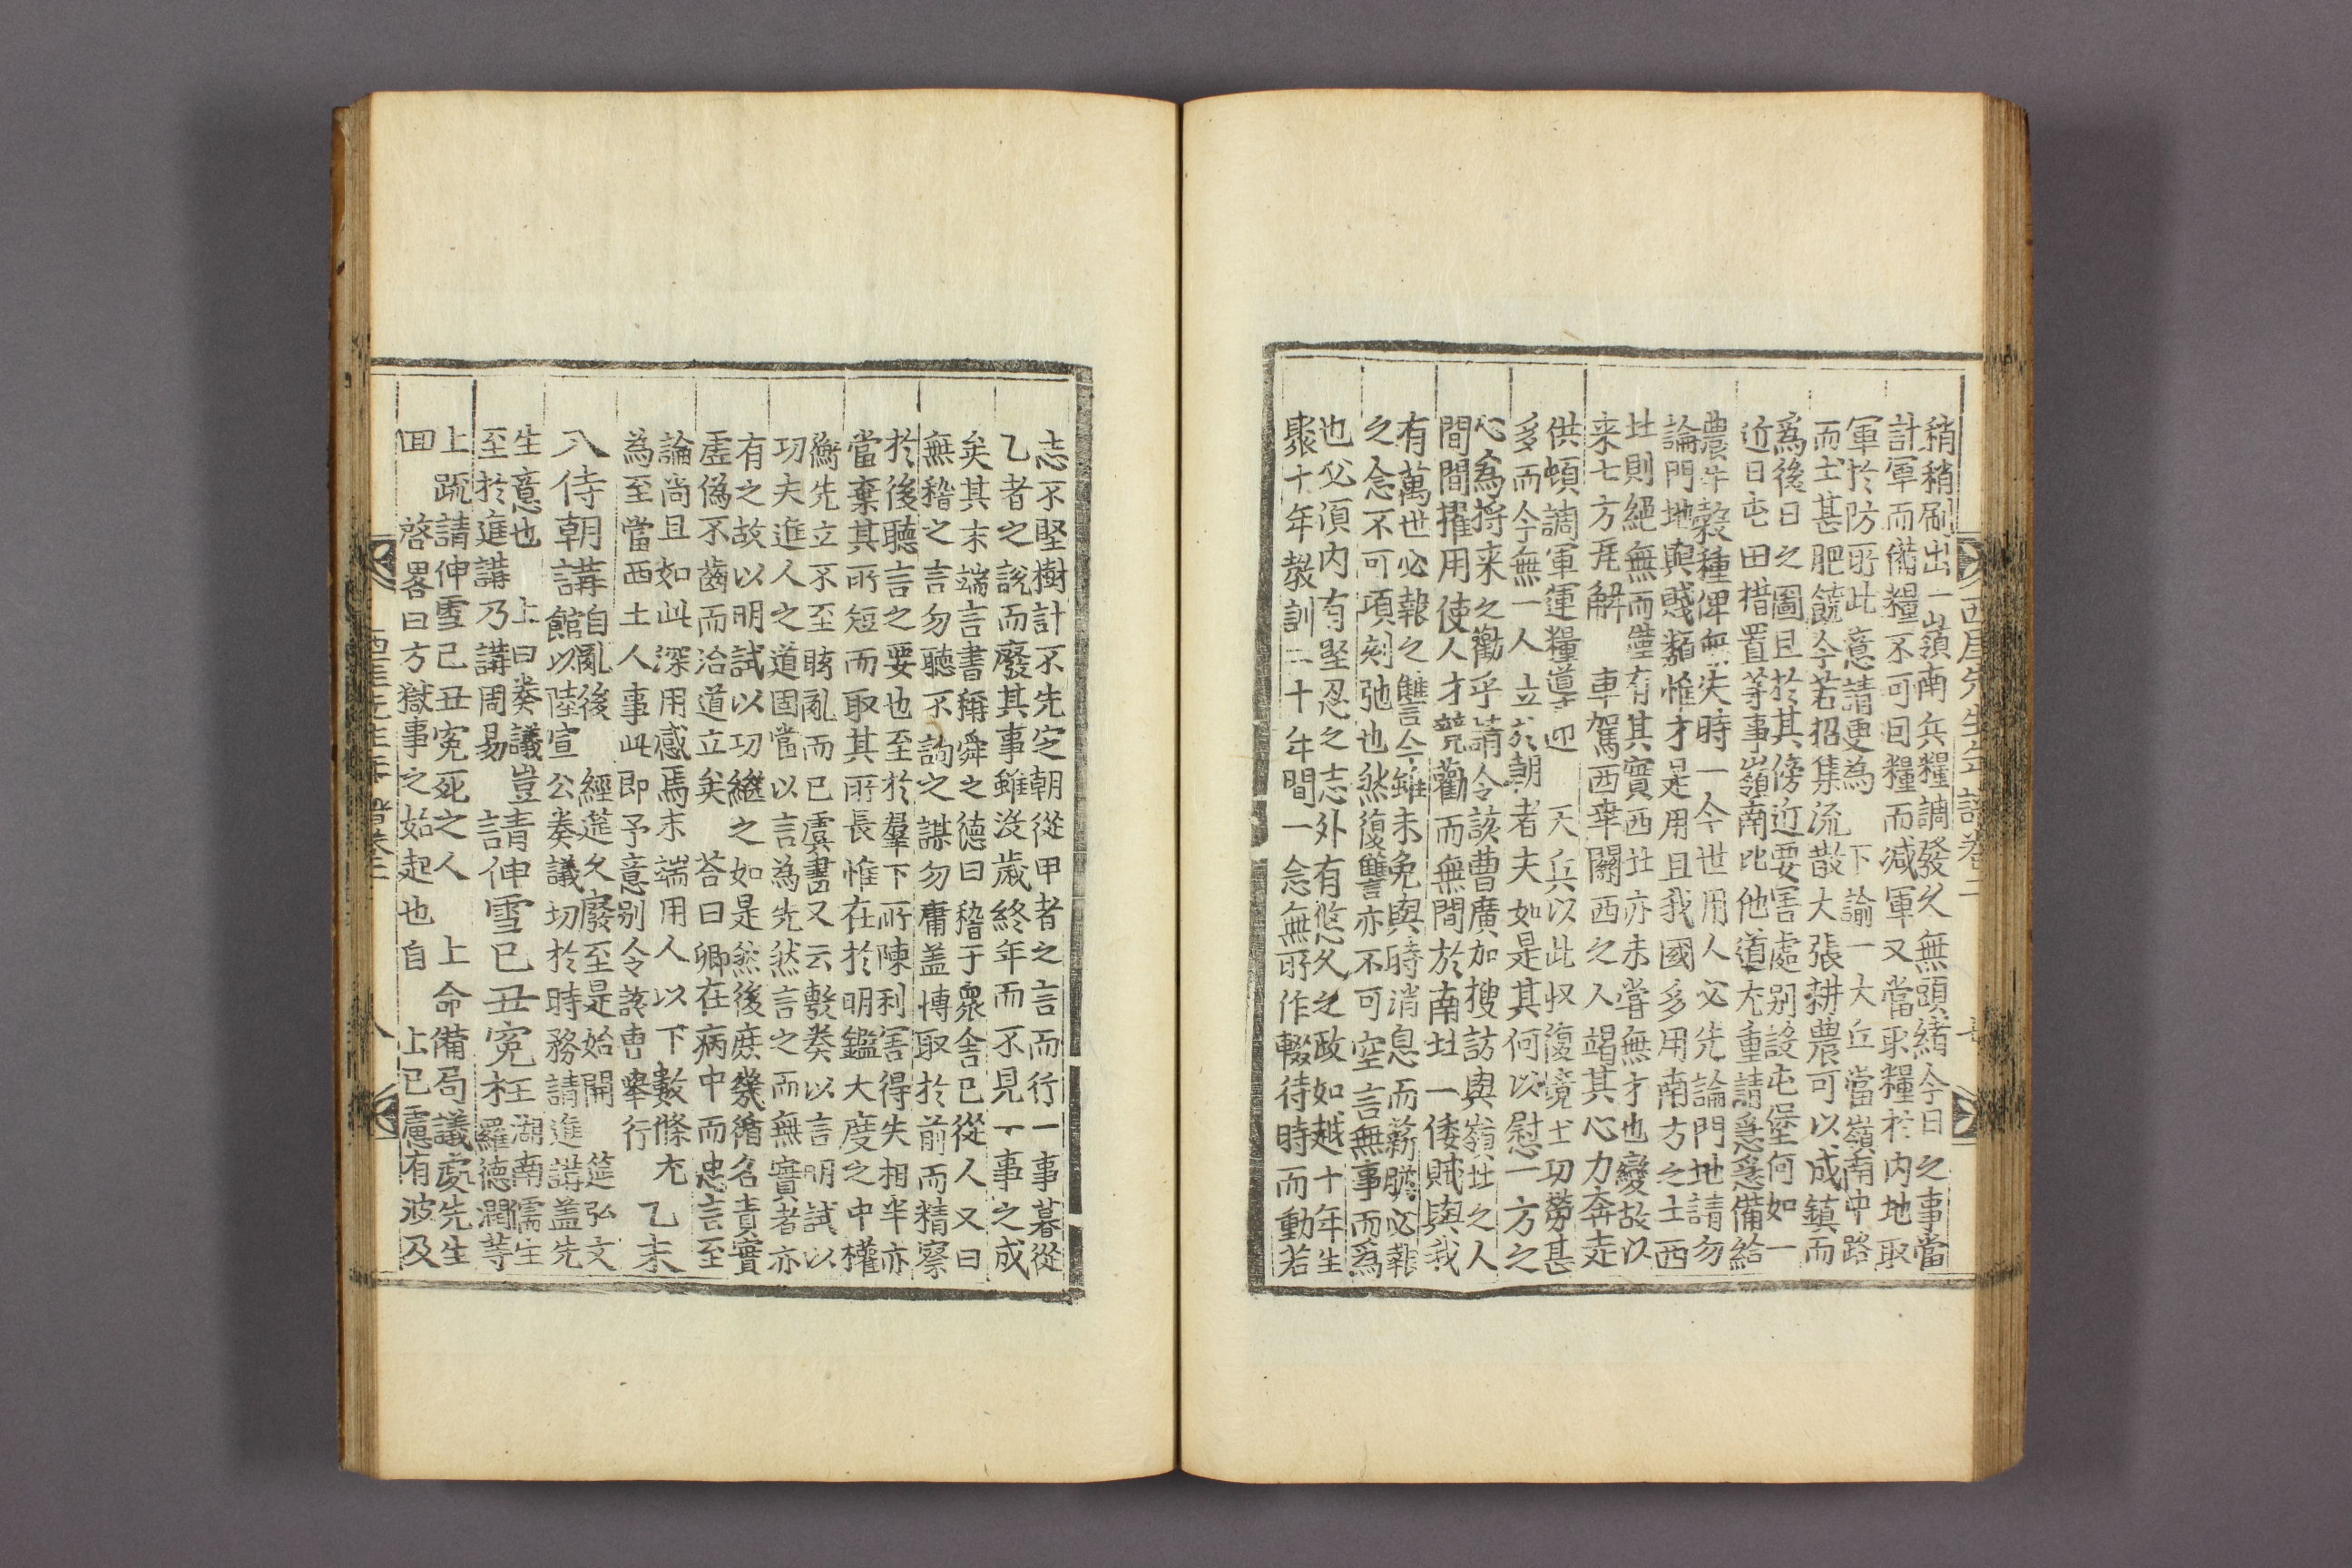 稍稍刷出一嶺南兵糧調發久無頭緖今日之事當
計軍而備糧不可因糧而减軍又當取糧於内地取
軍於防所此意請更爲 下諭一大丘當嶺南中路
而土甚肥饒今若招集流散大張耕農可以成鎮而
爲後日之圖且於其傍近要害處别設屯堡何如一
近日屯田措置等事嶺南比他道尤重請急急備給
農牛糓種俾無失時一今世用人必先論門地請勿
論門地與賤類惟才是用且我國多用南方之士西
北則絕無而僅有其實西北亦未嘗無才也變故以
來七方瓦解 車駕西幸關西之人竭其心力奔走
供頓調軍運糧導迎 天兵以此収復境土功勞甚
多而今無一人立於朝者夫如是其何以慰一方之
心爲將來之勸乎請令該曹廣加搜訪與嶺北之人
間間擢用使人才競勸而無間於南北一倭賊與我
有萬世必報之讐今雖未免與時消息而薪膽必報
之念不可頃刻弛也然復讐亦不可空言無事而爲
也必湏内有堅忍之志外有悠久之政如越十年生
聚十年敎訓二十年間一念無所作輟待時而動若
西厓先生年譜卷二
志不堅樹計不先定朝從甲者之言而行一事暮從
乙者之說而廢其事雖沒歲終年而不見一事之成
矣其末端言書稱舜之德曰稽于衆舎已從人又曰
無稽之言勿聽不詢之謀勿庸盖博取於前而精察
於後聽言之要也至於羣下所陳利害得失相半亦
當棄其所短而取其所長惟在於明鑑大度之中權
衡先立不至眩亂而已虞書又云敷奏以言明試以
功夫進人之道固當以言為先然言之而無實者亦
有之故以明試以功繼之如是然後庶幾循名責實
虛僞不齒而治道立矣 荅曰卿在病中而忠言至
論尚且如此深用感焉末端用人以下數條尤
為至當西土人事此卽予意别令該曹舉行 乙未
入侍朝講自亂後 經筵久廢至是始開 筵弘文
館以陸宣公奏議切於時務請進講盖先
生意也 上曰奏議豈
至於進講乃講周易 請伸雪已丑寃枉湖南儒生
羅德潤等
上䟽請伸雪已丑寃死之人 上命備局議處先生
回 啓畧曰方獄事之始起也自 上已慮有波及
西厓先生年譜卷二 八